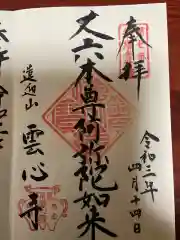 奉拝
令和三年
四月十四日
丈六本尊阿弥陀如来
雲心寺